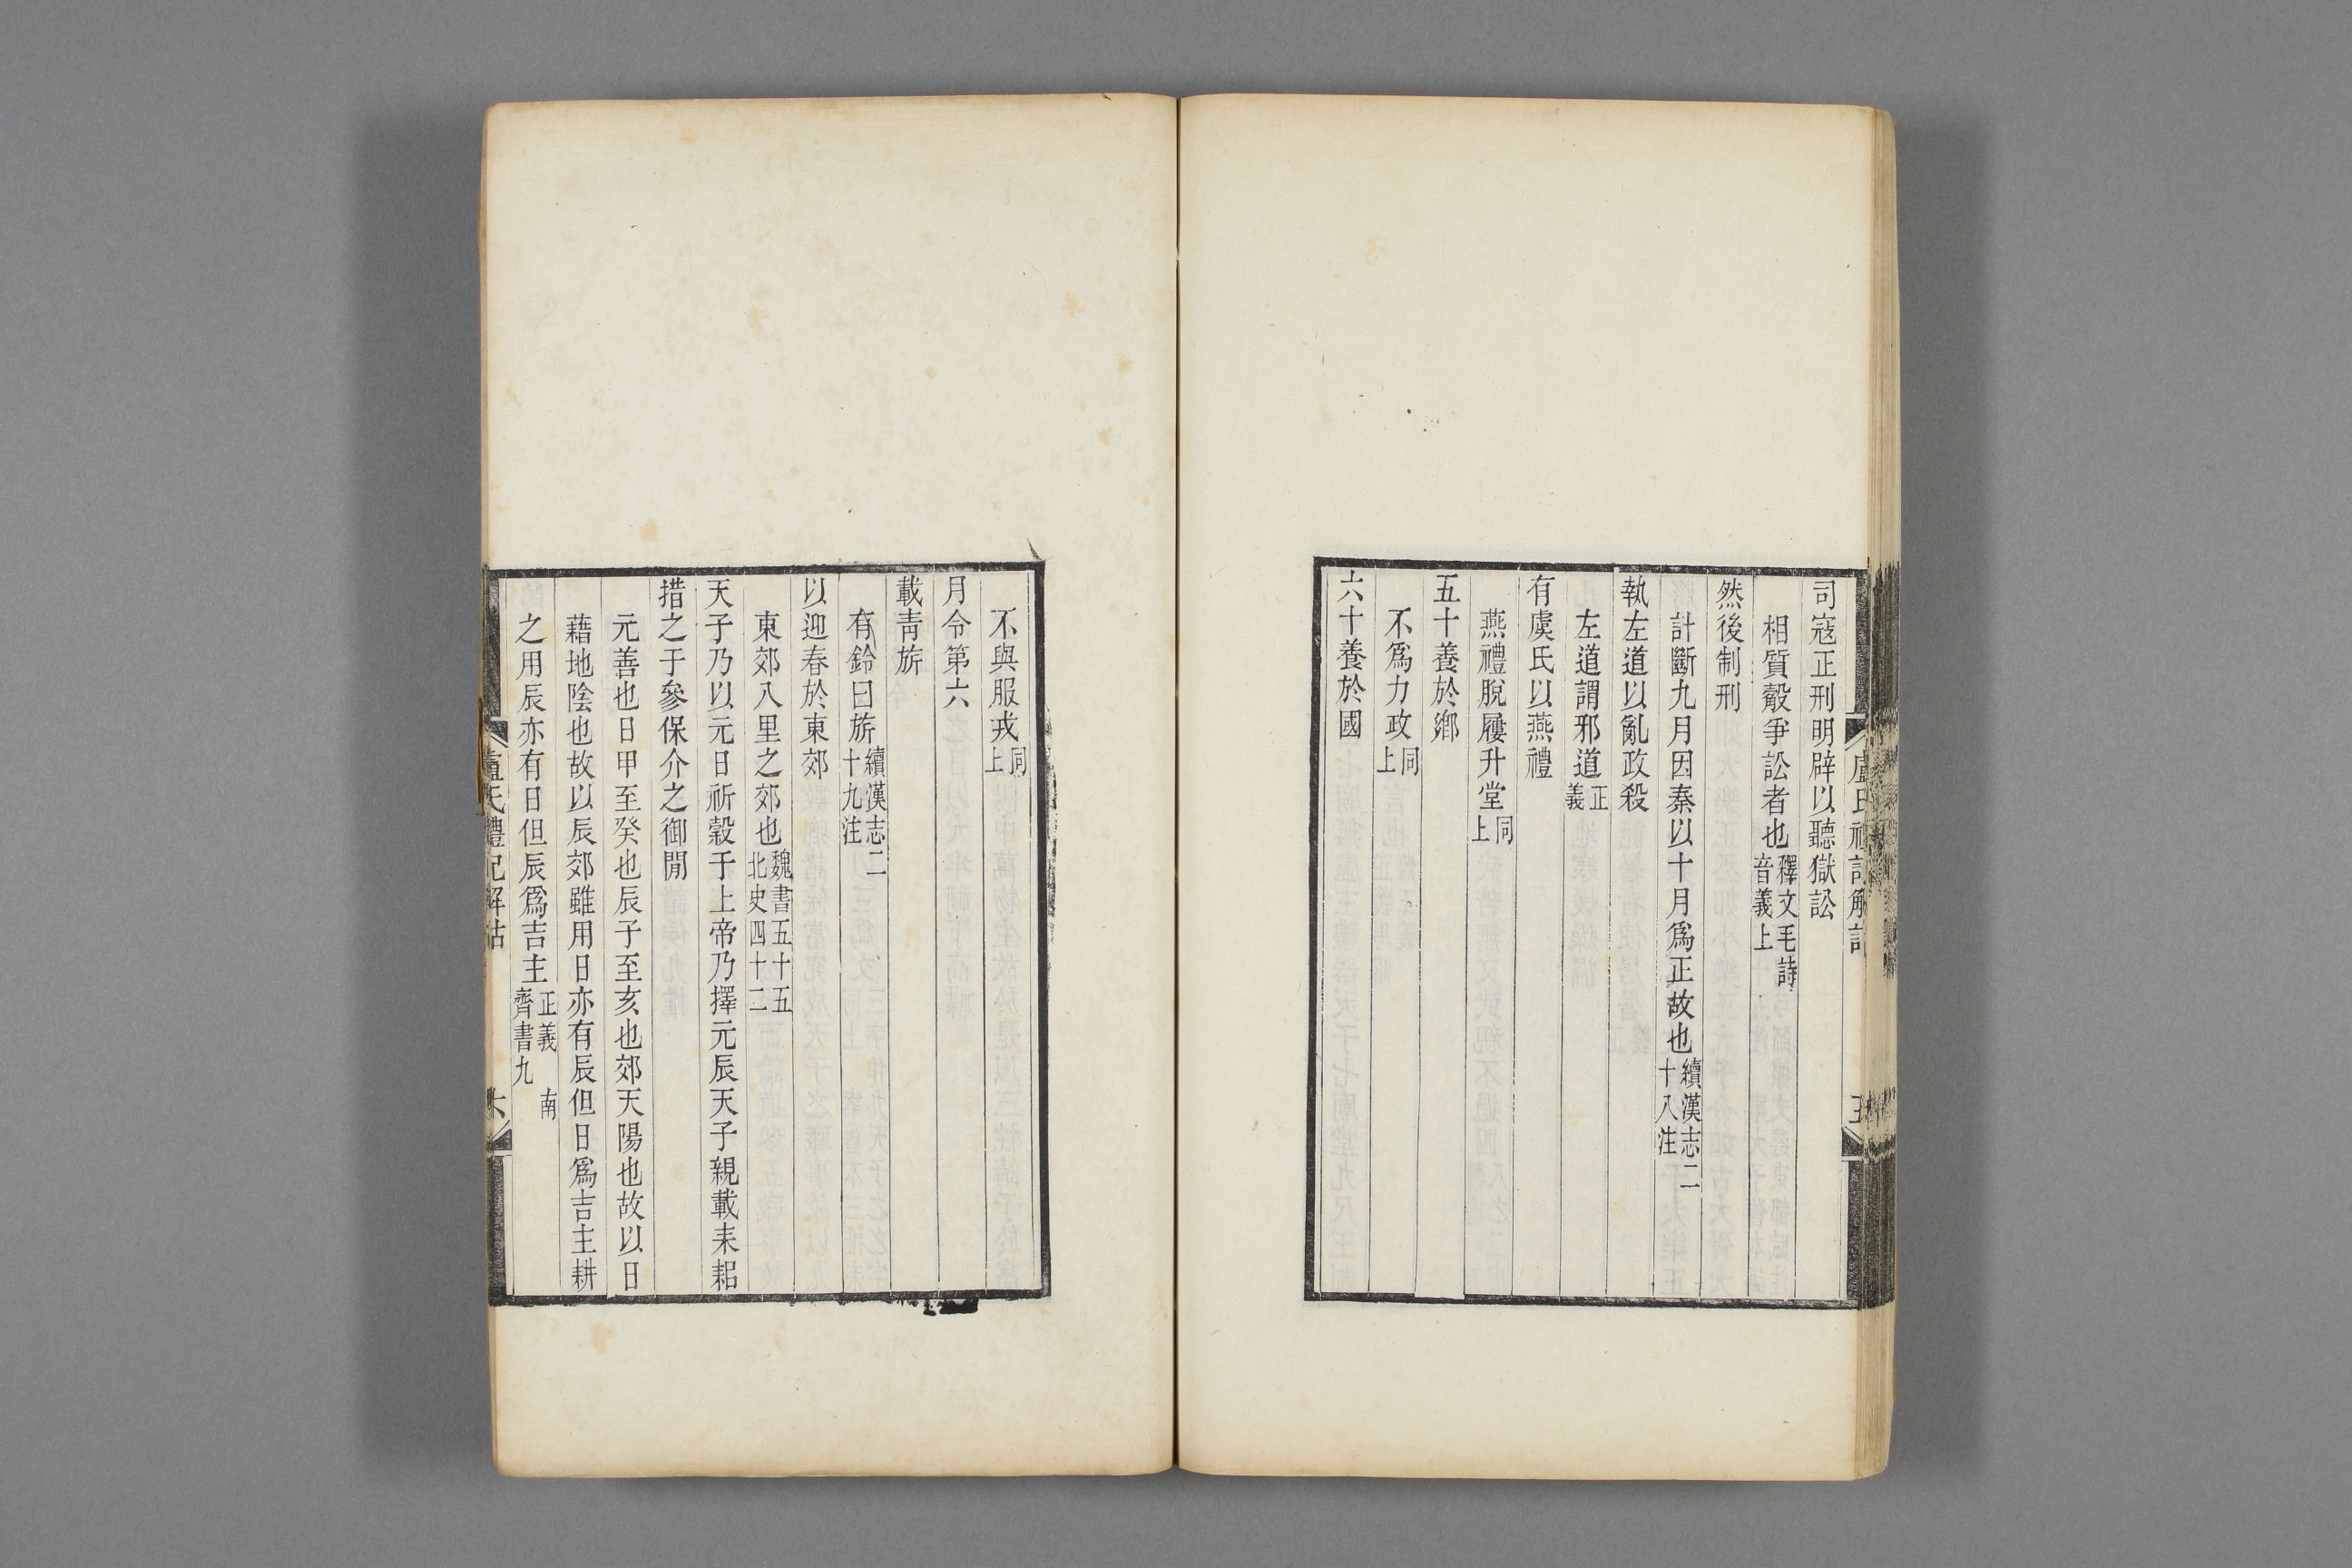 盧氏禮記解詁
五
司寇正刑明辟以聽獄訟
相質觳爭訟者也釋文毛詩音義上
然後制刑
計斷九月因秦以十月爲正故也續漢志二十八注
執左道以亂政殺
左道謂邪道正義
有虞氏以燕禮
燕禮脫屨升堂同上
五十養於鄉
不爲力政同上
六十養於國
不與服戎同上
月令第六
載青旂
有鈴曰旂續漢志二十九注
以迎春於東郊
東郊八里之郊也魏書五十五北史四十二
天子乃以元日祈穀于上帝乃擇元辰天子親載耒耜
措之于參保介之御閒
元善也日甲至癸也辰子至亥也郊天陽也故以日
藉地陰也故以辰郊雖用日亦有辰但日爲吉主耕
之用辰亦有日但辰爲吉主正義 南齊書九
盧氏禮記解詁
六